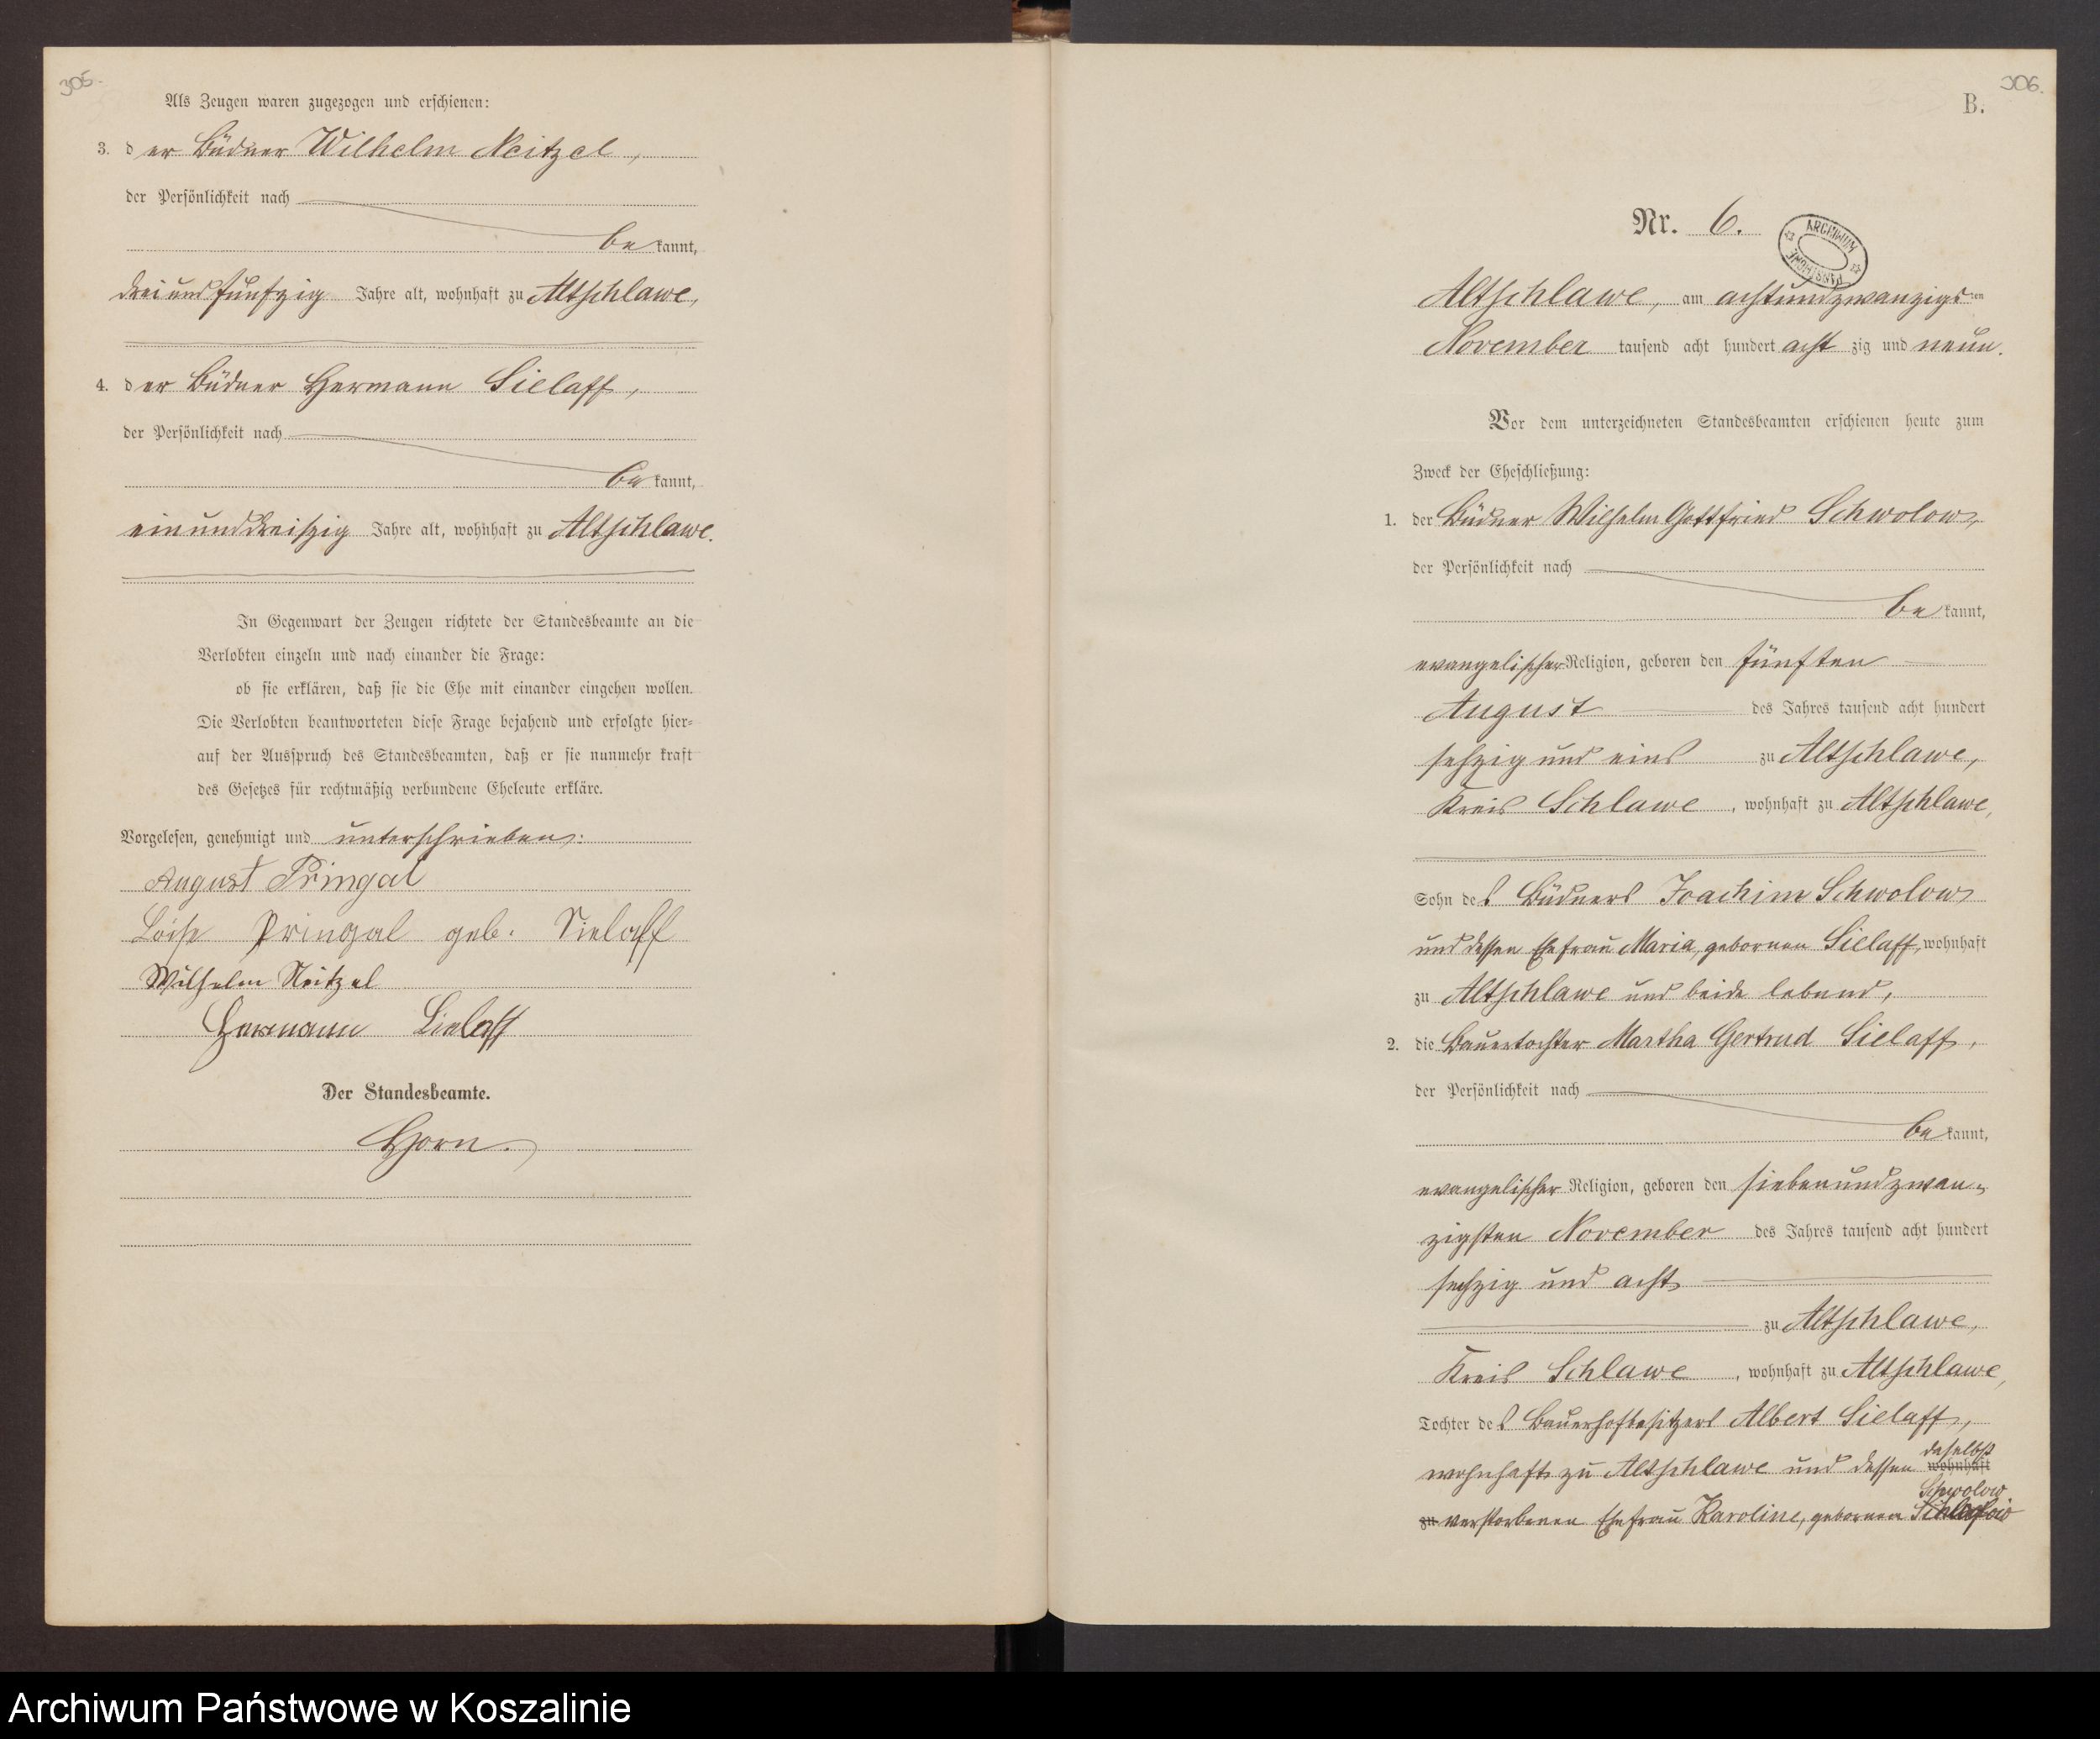 305.
Als Zeugen waren zugezogen und erschienen:
3. der Büdner Wilhelm Neitzel,
der Persönlichkeit nach
bekannt,
dreiundfünfzig Jahre alt, wohnhaft zu Altschlawe,
4. der Büdner Hermann Sielaff,
der Persönlichkeit nach
bekannt,
einunddreißig Jahre alt, wohnhaft zu Altschlawe.
In Gegenwart der Zeugen richtete der Standesbeamte an die
Verlobten einzeln und nach einander die Frage:
ob sie erklären, daß sie die Ehe mit einander eingehen wollen.
Die Verlobten beantworteten diese Frage bejahend und erfolgte hier-
auf der Ausspruch des Standesbeamten, daß er sie nunmehr kraft
des Gesetzes für rechtmäßig verbundene Eheleute erkläre.
Vorgelesen, genehmigt und unterschrieben:
August Pringal
Loise Pringal geb. Sielaff
Wilhelm Neitzel
Hermann Sielaff
Der Standesbeamte.
Horn.
306.
B.
Nr. 6.
ARCHIWUM PAŃSTWOWE
Altschlawe, am achtundzwanzigsten
November tausend acht hundert achtzig und neun.
Vor dem unterzeichneten Standesbeamten erschienen heute zum
Zweck der Eheschließung:
1. der Büdner Wilhelm Gottfried Schwolow,
der Persönlichkeit nach
bekannt,
evangelischer Religion, geboren den fünften
August des Jahres tausend acht hundert
sechzig und eins zu Altschlawe,
Kreis Schlawe, wohnhaft zu Altschlawe,
Sohn des Büdners Joachim Schwolow
und dessen Ehefrau Maria, gebornen Sielaff, wohnhaft
zu Altschlawe und beide lebend,
2. die Bauertochter Martha Gertrud Sielaff,
der Persönlichkeit nach
bekannt,
evangelischer Religion, geboren den siebenundzwan-
zigsten November des Jahres tausend acht hundert
sechzig und acht
zu Altschlawe,
Kreis Schlawe, wohnhaft zu Altschlawe,
Tochter des Bauerhofbesitzers Albert Sielaff,
daselbst
wohnhaft zu Altschlawe und dessen wohnhaft
Schwolow
zu verstorbenen Ehefrau Karoline, gebornen
Archiwum Państwowe w Koszalinie